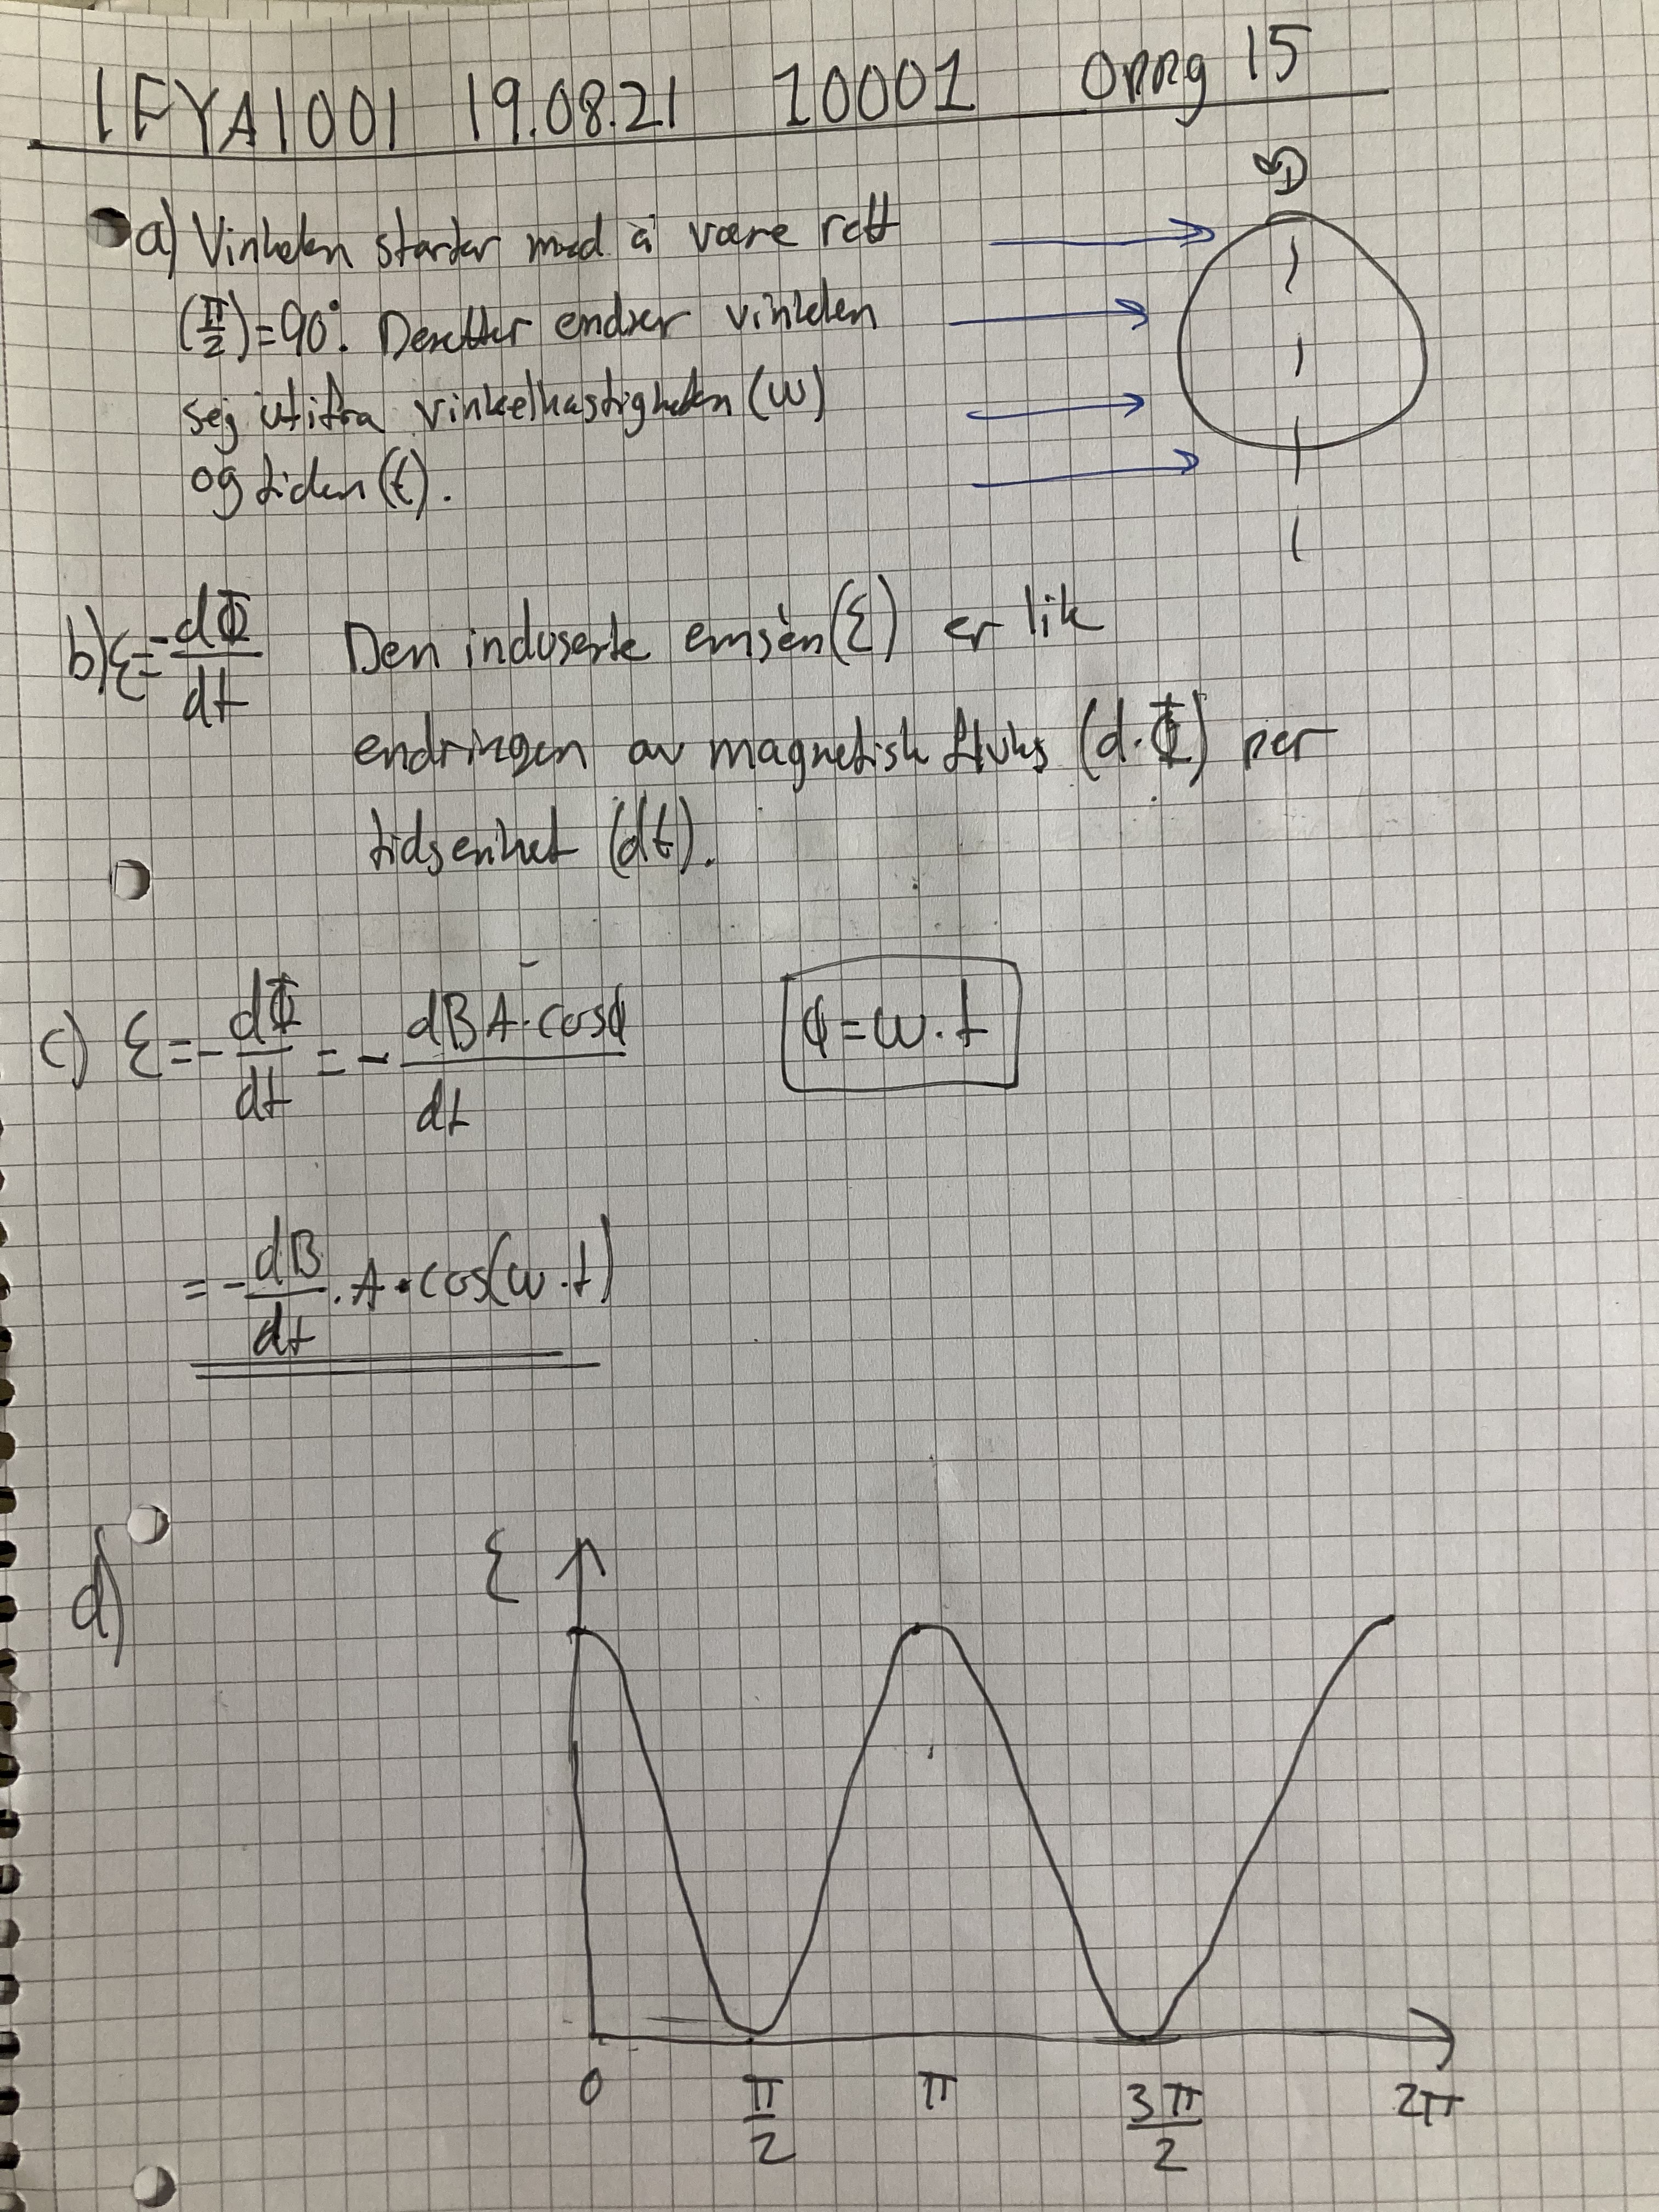 IFYA1001 19.08.21 10001 Oppg 15
a) Vinkelen starter med å være rett
(π/2)=90°. Deretter endrer vinkelen
seg utifra vinkelhastigheten (ω)
og tiden (t).
b) ε=-dΦ/dt Den induserte emsèn (ε) er lik
endringen av magnetisk fluks (d·Φ) per
tidsenhet (dt).
c) ε=-dΦ/dt = -dBA·cosϕ/dt ϕ=ω·t
=-dB/dt·A·cos(ω·t)
d) ε
0 π/2 π 3π/2 2π